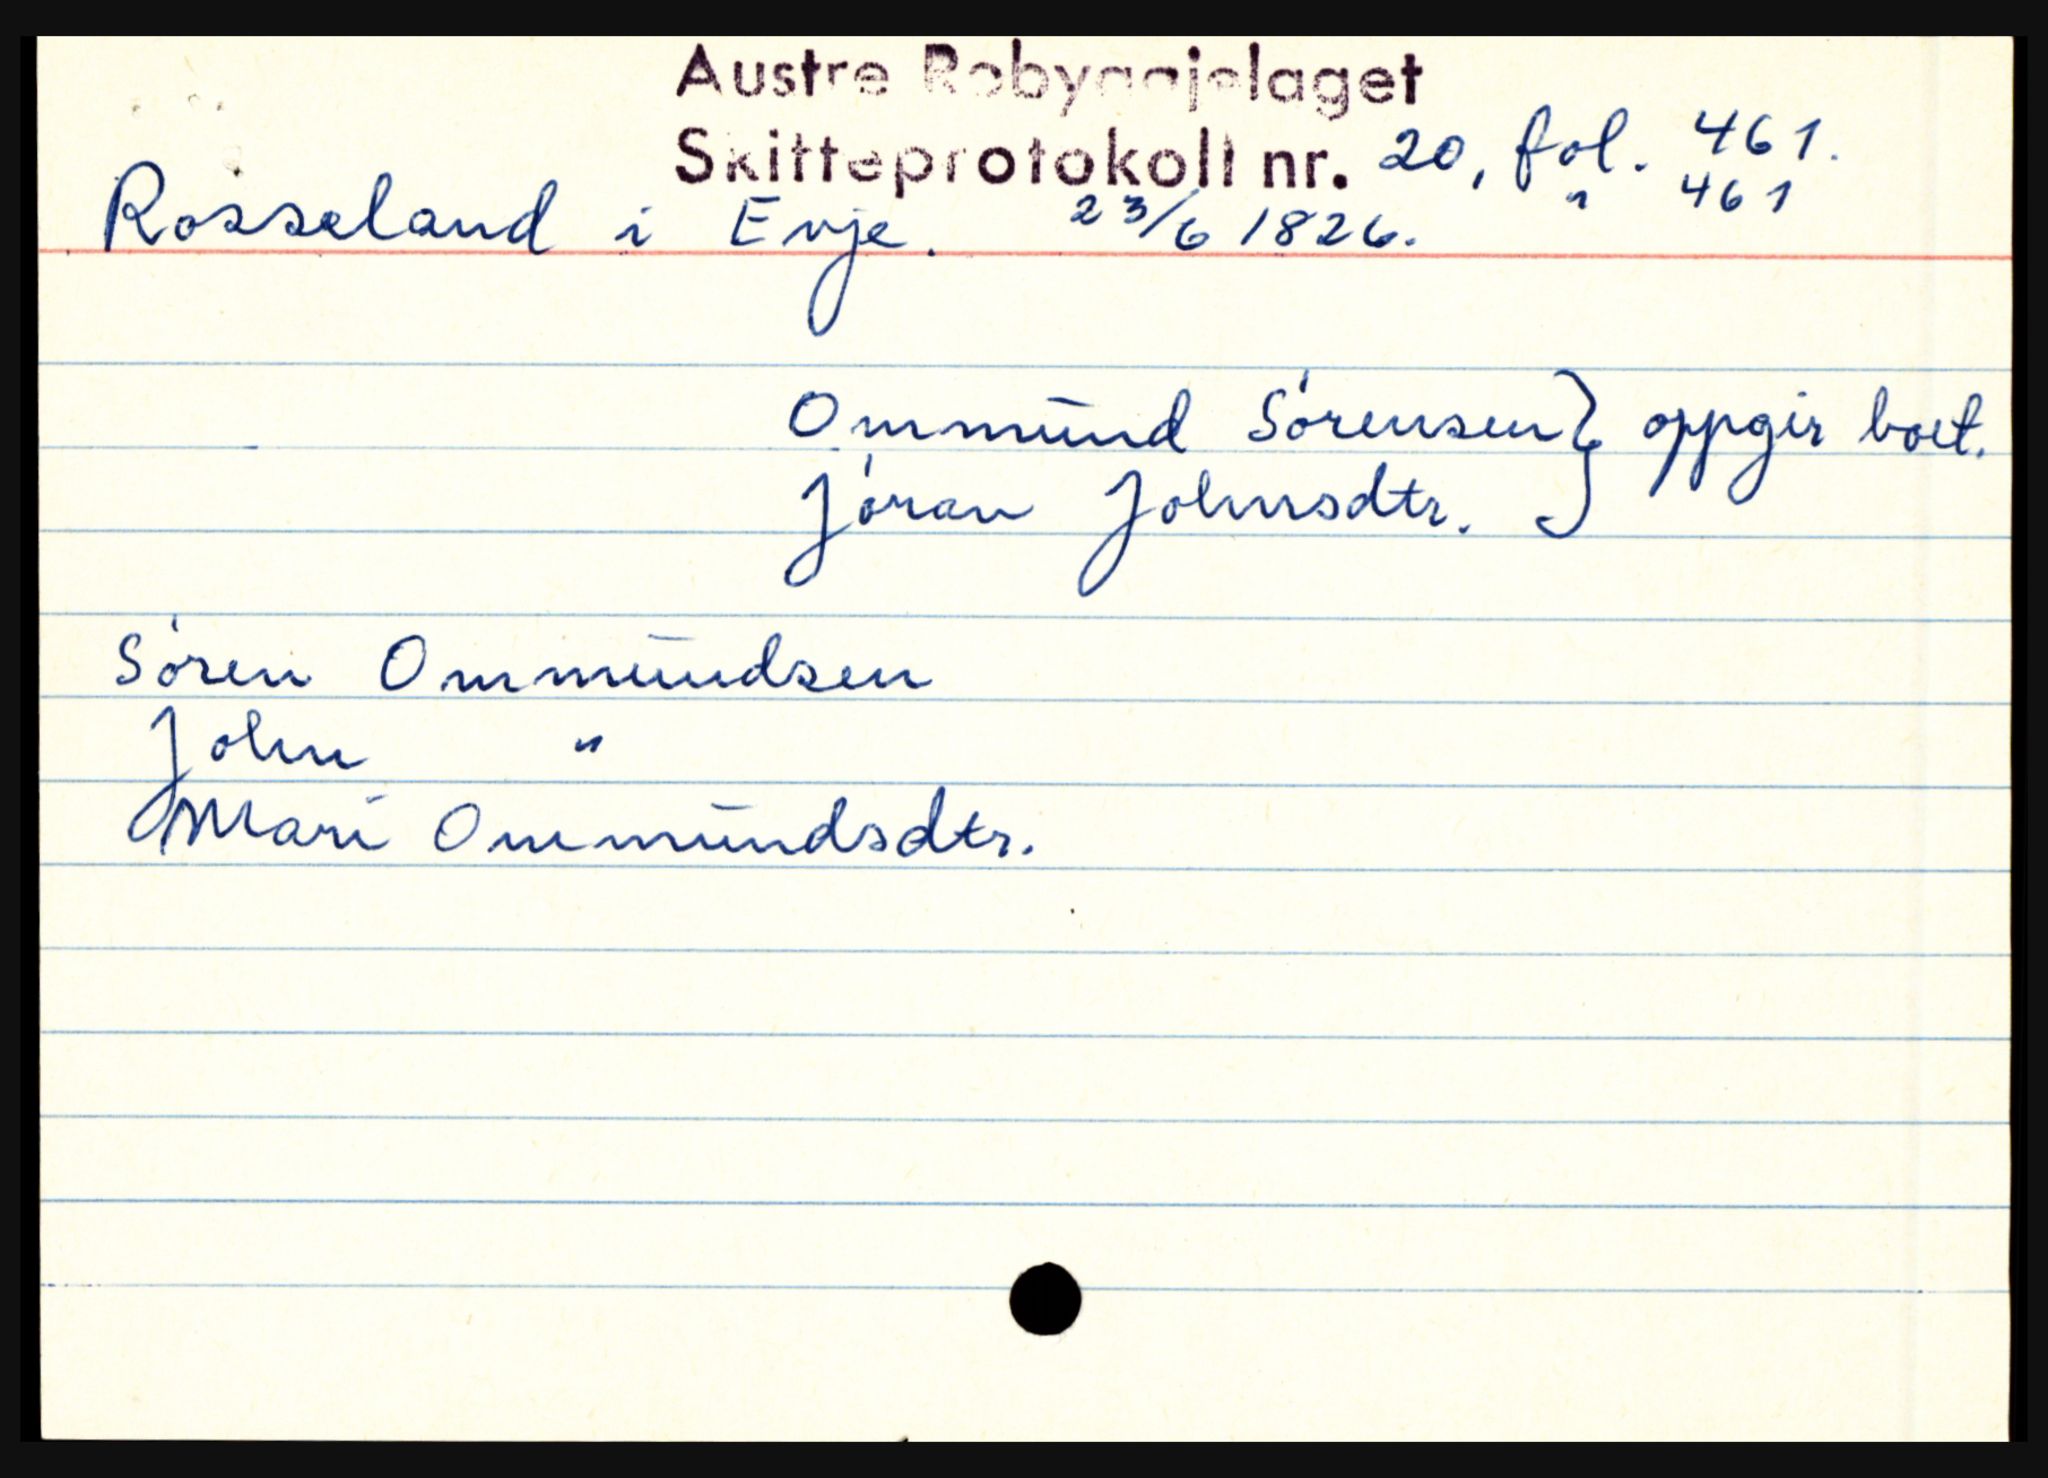 Austre Robyggjelaget
Skifteprotokoll nr. 20, fol. 461.
Rosseland i Evje. 23/6 1826. " 461
Ommund Sórensen } oppgir boet.
Jóran Johnsdtr.
Sóren Ommundsen
John "
Mari Ommundsdtr.